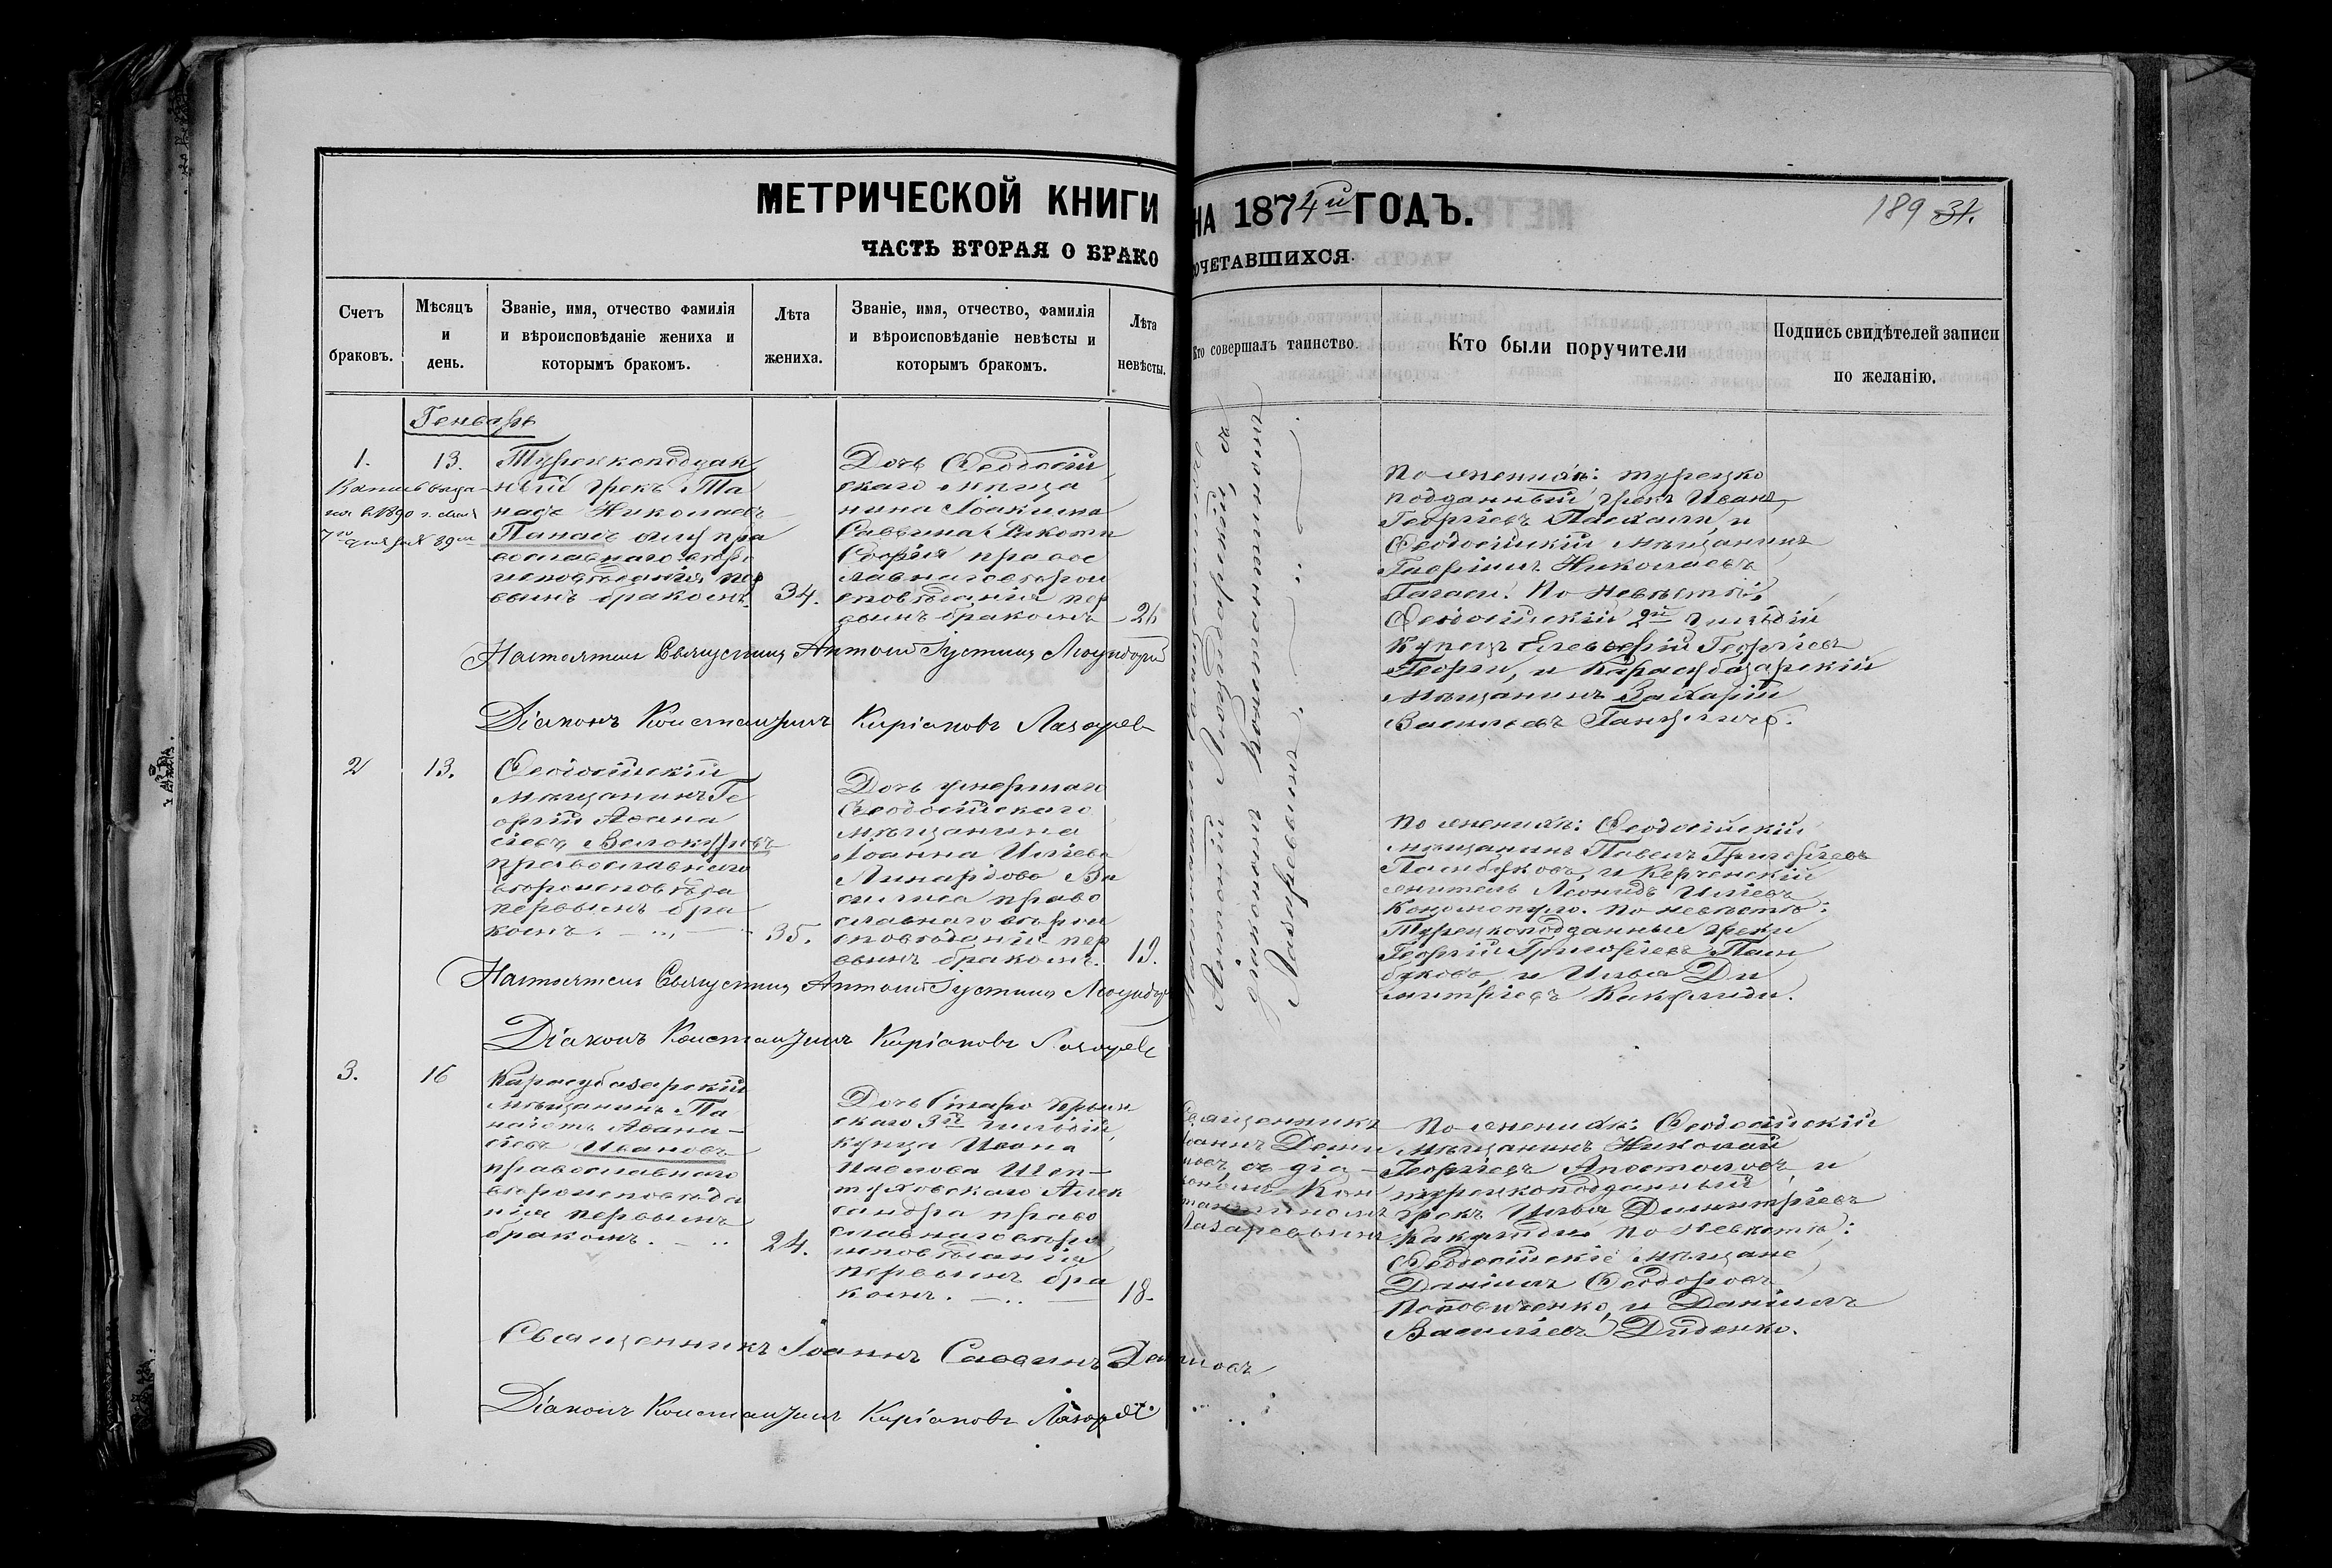 МЕТРИЧЕСКОЙ КНИГИ НА 1874й ГОДЪ.
189 31.
ЧАСТЬ ВТОРАЯ О БРАКОСОЧЕТАВШИХСЯ.
Счетъ браковъ.
Мѣсяцъ и день.
Званіе, имя, отчество фамилія
и вѣроисповѣданіе жениха и
которымъ бракомъ.
Лѣта жениха.
Званіе, имя, отчество, фамилія
и вѣроисповѣданіе невѣсты и
которымъ бракомъ.
Лѣта невѣсты.
Кто совершалъ таинство.
Кто были поручители
Подпись свидѣтелей записи
по желанію.
Генварь
1.
13.
Турецкоподдан
ный грекъ
Николаевъ
Панасъ
православнаго вѣро
исповѣданія пер
вымъ бракомъ.
34.
Дочь Ѳеодосій
скаго мѣща
нина Іоакима
Саввина
Софія правос
лавнаго вѣрои
сповѣданія пер
вымъ бракомъ
26
По женихѣ: турецко
подданный грекъ Иванъ
Георгіевъ и
Ѳеодосійскій мѣщанинъ
Николаевъ
По невѣстѣ:
Ѳеодосійскій 2й гильдіи
купецъ Елевѳерій Георгіевъ
Георги, и Карасубазарскій
мѣщанинъ Захарій
Васильевъ
Настоятель Священникъ Антоній
Діаконъ Константинъ Киріаковъ Лазаревъ
2
13.
Ѳеодосійскій
мѣщанинъ Ге
оргій Аѳана
сіевъ
православнаго
вѣроисповѣда
первымъ бра
комъ.
35.
Дочь умершаго
Ѳеодосійскаго
мѣщанина
Іоанна Ильева
Линардова Ва
силиса право
славнаго вѣрои
сповѣданія пер
вымъ бракомъ.
19.
Антоній
діакономъ Константиномъ
Лазаревымъ
По женихѣ: Ѳеодосійскій
мѣщанинъ Павелъ Григорьевъ
и Керченскій
житель Леонидъ Ильевъ
По невѣстѣ:
Турецкоподданные греки
Георгій Григорьевъ
и Илья Ди
митріевъ
Настоятель Священникъ Антоній
Діаконъ Константинъ Киріаковъ Лазаревъ
3.
16
Карасубазарскій
мѣщанинъ Па
наіотъ Аѳана
сіевъ Ивановъ
православнаго
вѣроисповѣда
нія первымъ
бракомъ.
24.
Дочь Старо Крым
скаго 3й гильдіи
купца Ивана
Павлова Шеп
туховскаго Алек
сандра право
славнаго вѣро
исповѣданія
первымъ бра
комъ.
18.
Священникъ
Іоаннъ Деми
съ діа
кономъ Кон
стантиномъ
Лазаревымъ
По женихѣ: Ѳеодосійскій
мѣщанинъ Николай
Георгіевъ Апостоловъ, и
турецкоподданный
грекъ Илья Димитріевъ
По невѣстѣ:
Ѳеодосійскіе мѣщане
Даніилъ Ѳеодоровъ
Поповиченко, и Даніилъ
Васильевъ Диденко.
Священникъ Іоаннъ Саввинъ
Діаконъ Константинъ Киріаковъ Лазаревъ